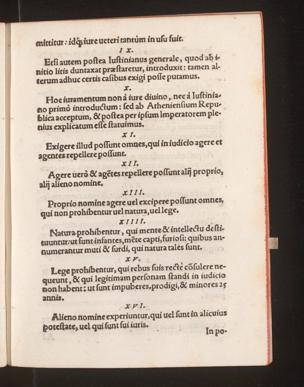 mittitur: idq̃ iure ueteri tantùm in usu fuit.
IX.
Etsi autem postea Iustinianus generale, quod ab i-
nitio litis duntaxat præstaretur, introduxit: tamen al-
terum adhuc certis casibus exigi posse putamus.
X.
Hoc iuramentum non à iure diuino, nec à Iustinia-
no primò introductum: sed ab Atheniensium Repu-
blica acceptum, & postea per ipsum Imperatorem ple-
nius explicatum esse statuimus.
XI.
Exigere illud possunt omnes, qui in iudicio agere et
agentes repellere possunt.
XII.
Agere uerò & agẽtes repellere possunt alij proprio,
alij alieno nomine,
XIII.
Proprio nomine agere uel excipere possunt omnes,
qui non prohibentur uel natura, uel lege.
XIIII.
Natura prohibentur, qui mente & intellectu desti-
tuuntur: ut sunt infantes, mẽte capti, furiosi: quibus an-
numerantur muti & surdi, qui natura tales sunt.
XV.
Lege prohibentur, qui rebus suis rectè cõsulere ne-
queunt, & qui legitimam personam standi in iudicio
non habent: ut sunt impuberes, prodigi, & minores 25
annis.
XVI.
Alieno nomine experiuntur, qui uel sunt in alicuius
potestate, uel qui sunt sui iuris.
In po-